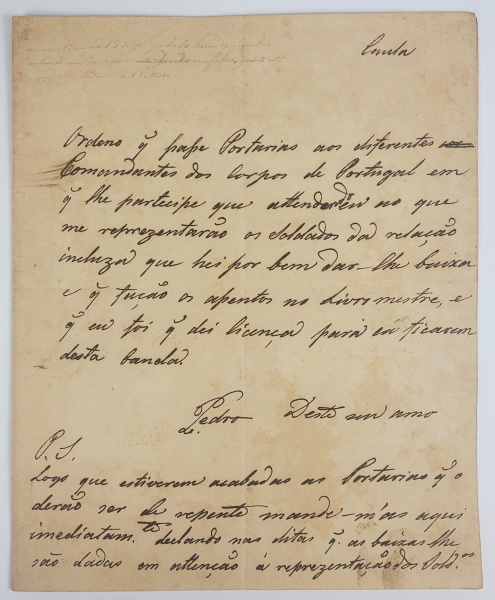 Caula
Ordeno q̃ passe Portarias aos diferentes
Comandantes dos Corpos de Portugal em
q̃ lhe partecipe que attendendo eu ao que
me reprezentarão os Soldados da relação
incluza que hei por bem dar-lhe baixa
e q̃ fução os apentos no Livro mestre, e
q̃ eu foi q̃ dei licença para cá ficarem
desta banda.
Pedro Deste seu amo
P. S.
Logo que estiverem acabadas as Portarias q̃ o
derão ser de repente mande-m'as aqui
imediatam.te declando nas ditas q̃. as baixas lhe
são dadas em attenção á reprezentação dos Sold.os